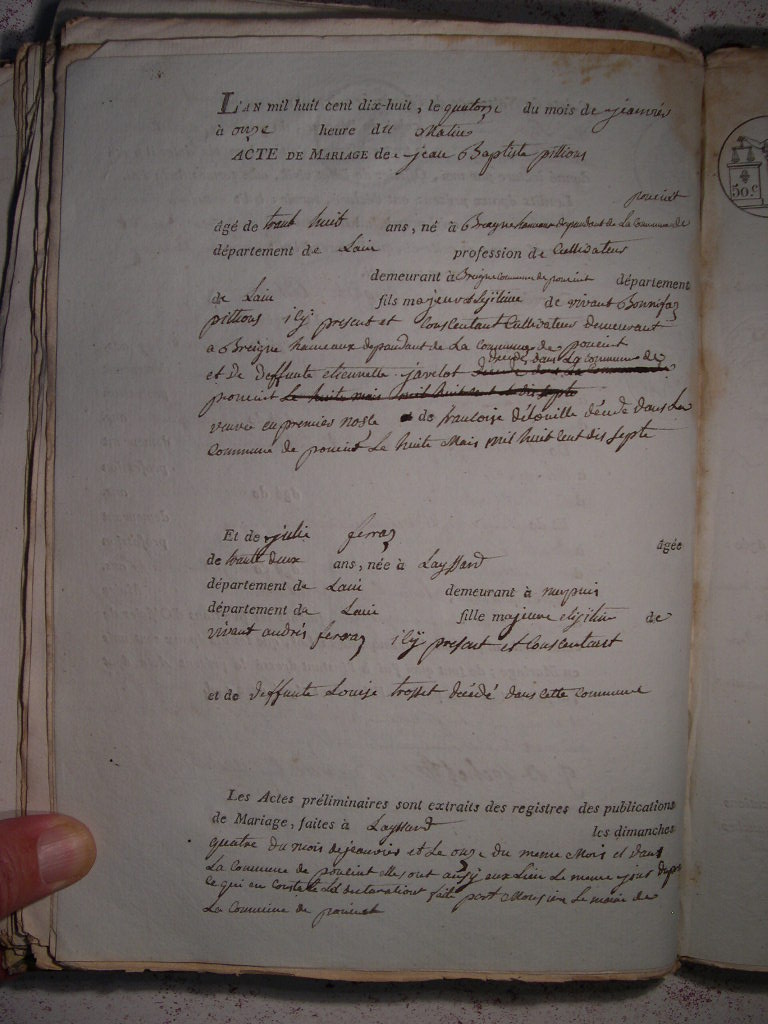 L'AN mil huit cent dix-huit, le quatorze du mois de jeanvies
à onze heure du Matin
ACTE DE MARIAGE de jean Baptiste pittions
poncint
âgé de trante huit ans, né à Breigne hameaux depandant de La Commune de
département de Lain profession de Cultivateur
demeurant à Breigne Commune de poncint département
de Lain fils majeur et legitime de vivant Bonnifaz
pittions icÿ present et Consentant Cultivateur demeurant
a Breigne hameaux depandant de La Commune de poncint
décédé dans La commune de
et de deffunte etiennette javelot
poncint
veuve en premies nosse de francoise détouille décédé dans La
Commune de poncint Le huite Mais mil huit Cent dis septe
Et de julie ferraz âgée
de trante deux ans, née à Layssard
département de Lain demeurant à
département de Lain fille majeure et legitime de
vivant andrés ferraz icÿ present et Consentant
et de deffunte Louise trosset décédé dans Cette Commune
Les Actes préliminaires sont extraits des registres des publications
de Mariage, faites à Layssard les dimanches
quatre du mois de jeanvies et Le onze du meme Mois et dans
La Commune de poncint elles ont aussÿ eux Lieu Le meme jour
Ce qui en Constate La declarationt faite part Monsieur Le maire de
La Commune de poncint
50.C